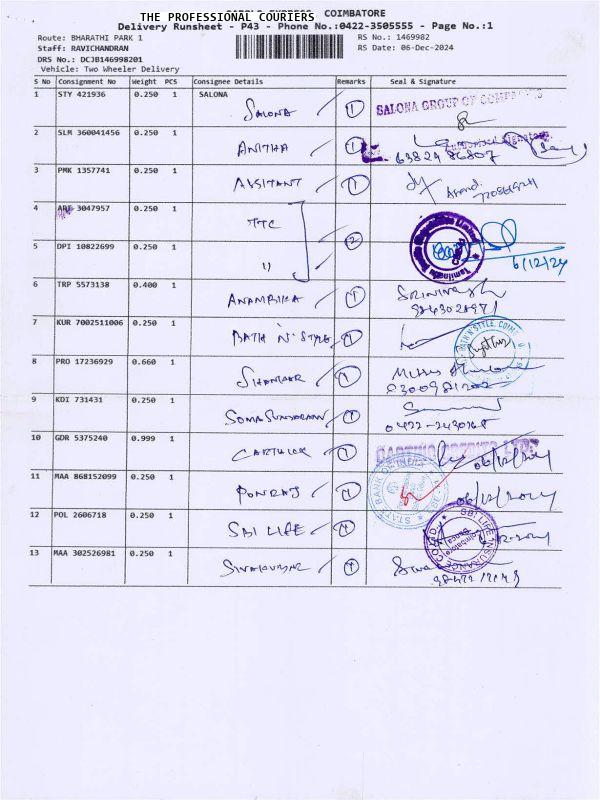 THE PROFESSIONAL COURIERS COIMBATORE
Delivery Runsheet - P43 - Phone No.:0422-3505555 - Page No.:1
Route: BHARATHI PARK 1
RS No.: 1469982
Staff: RAVICHANDRAN
RS Date: 06-Dec-2024
DRS No.: DCJB146998201
Vehicle: Two Wheeler Delivery
S No Consignment No Weight PCS Consignee Details Remarks Seal & Signature
1 STY 421936 0.250 1 SALONA
SALONA 1 SALONA GROUP OF
2 SLM 360041456 0.250 1
ANITHA 1 Authorised Signatory
63824 86807
3 PMK 1357741 0.250 1
ASSITANT 1 Anand
4 3047957 0.250 1
TTC
2
5 DPI 10822699 0.250 1
11
6/12/24
6 TRP 5573138 0.400 1
ANAMBIKA 1
7 KUR 7002511006 0.250 1
BATH N' STYLE 1
8 PRO 17236929 0.660 1
SHANKAR 1
9 KDI 731431 0.250 1
SOMASUNDARAM 1
0422-2430165
10 GDR 5375240 0.999 1
CARTHICK 1
06/12/2024
11 MAA 868152099 0.250 1
PONRAJ 1 STATE BANK
06/12/2024
12 POL 2606718 0.250 1
SBI LIFE 1 SBI LIFE INSURANCE CO LTD
Coimbatore
13 MAA 302526981 0.250 1
SIVAKUMAR 1 Siva